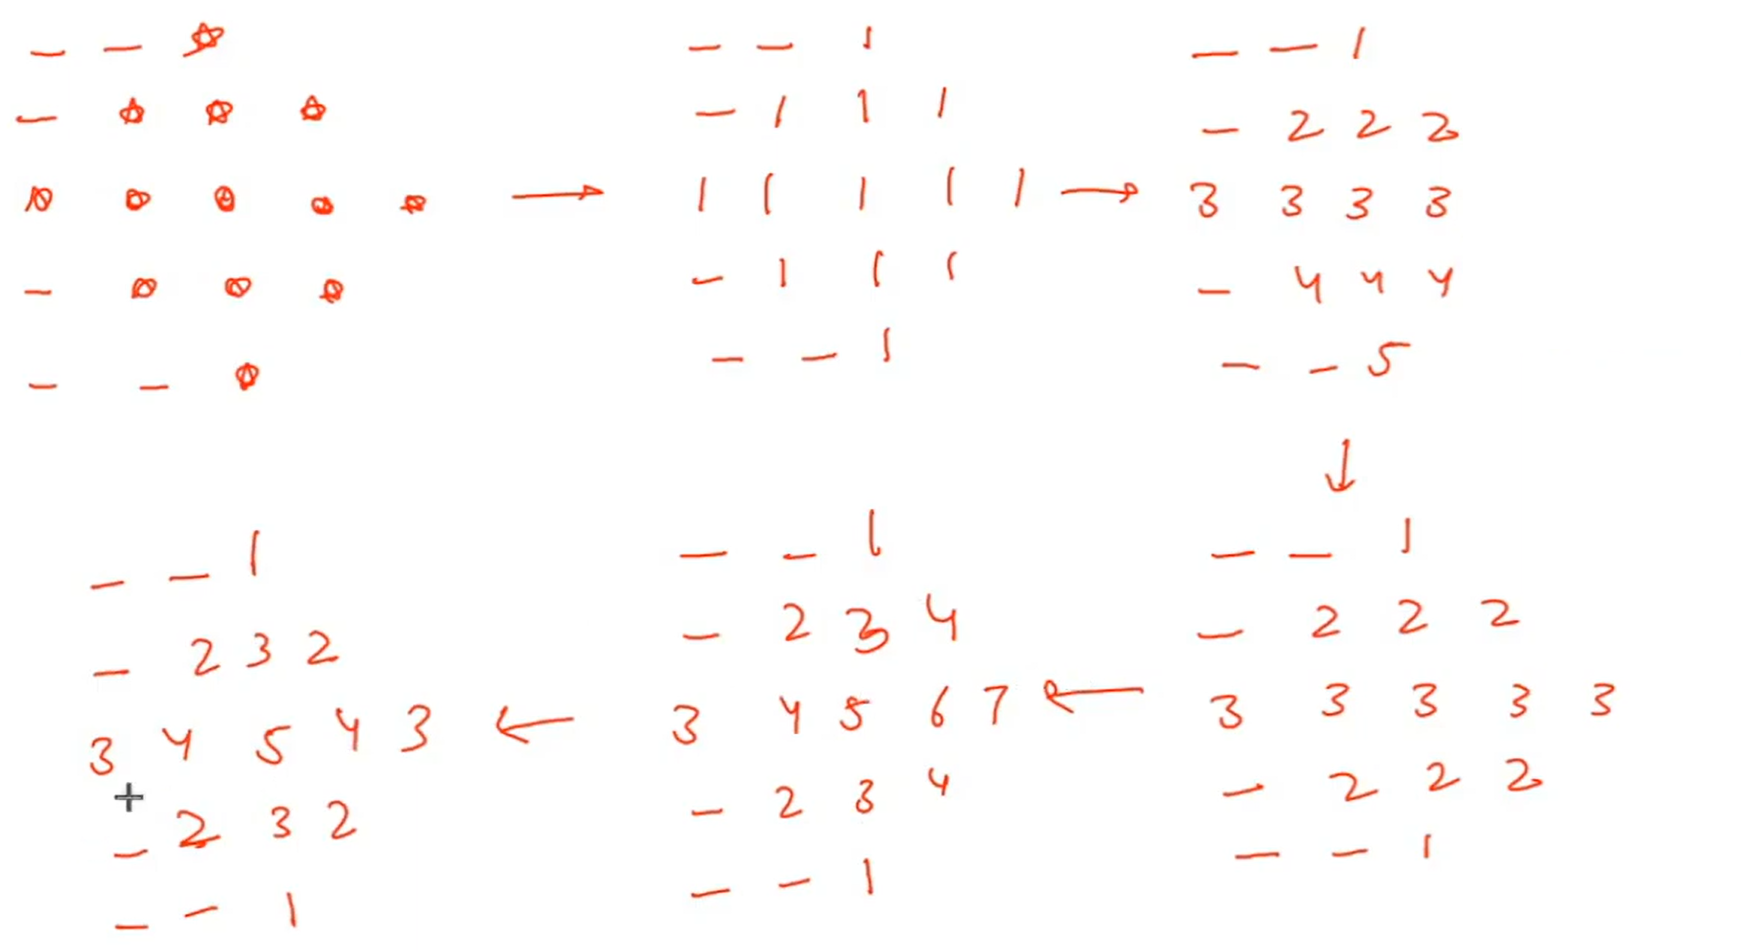 _ _ ☆
_ ☆ ☆ ☆
☆ ☆ ☆ ☆ ☆ →
_ ☆ ☆ ☆
_ _ ☆
_ _ 1
_ 1 1 1
1 1 1 1 1 →
_ 1 1 1
_ _ 1
_ _ 1
_ 2 2 2
3 3 3 3
_ 4 4 4
_ _ 5
↓
_ _ 1
_ 2 2 2
3 3 3 3 3
_ 2 2 2
_ _ 1
_ _ 1
_ 2 3 4
3 4 5 6 7 ←
_ 2 3 4
_ _ 1
_ _ 1
_ 2 3 2
3 4 5 4 3 ←
_ 2 3 2
_ _ 1